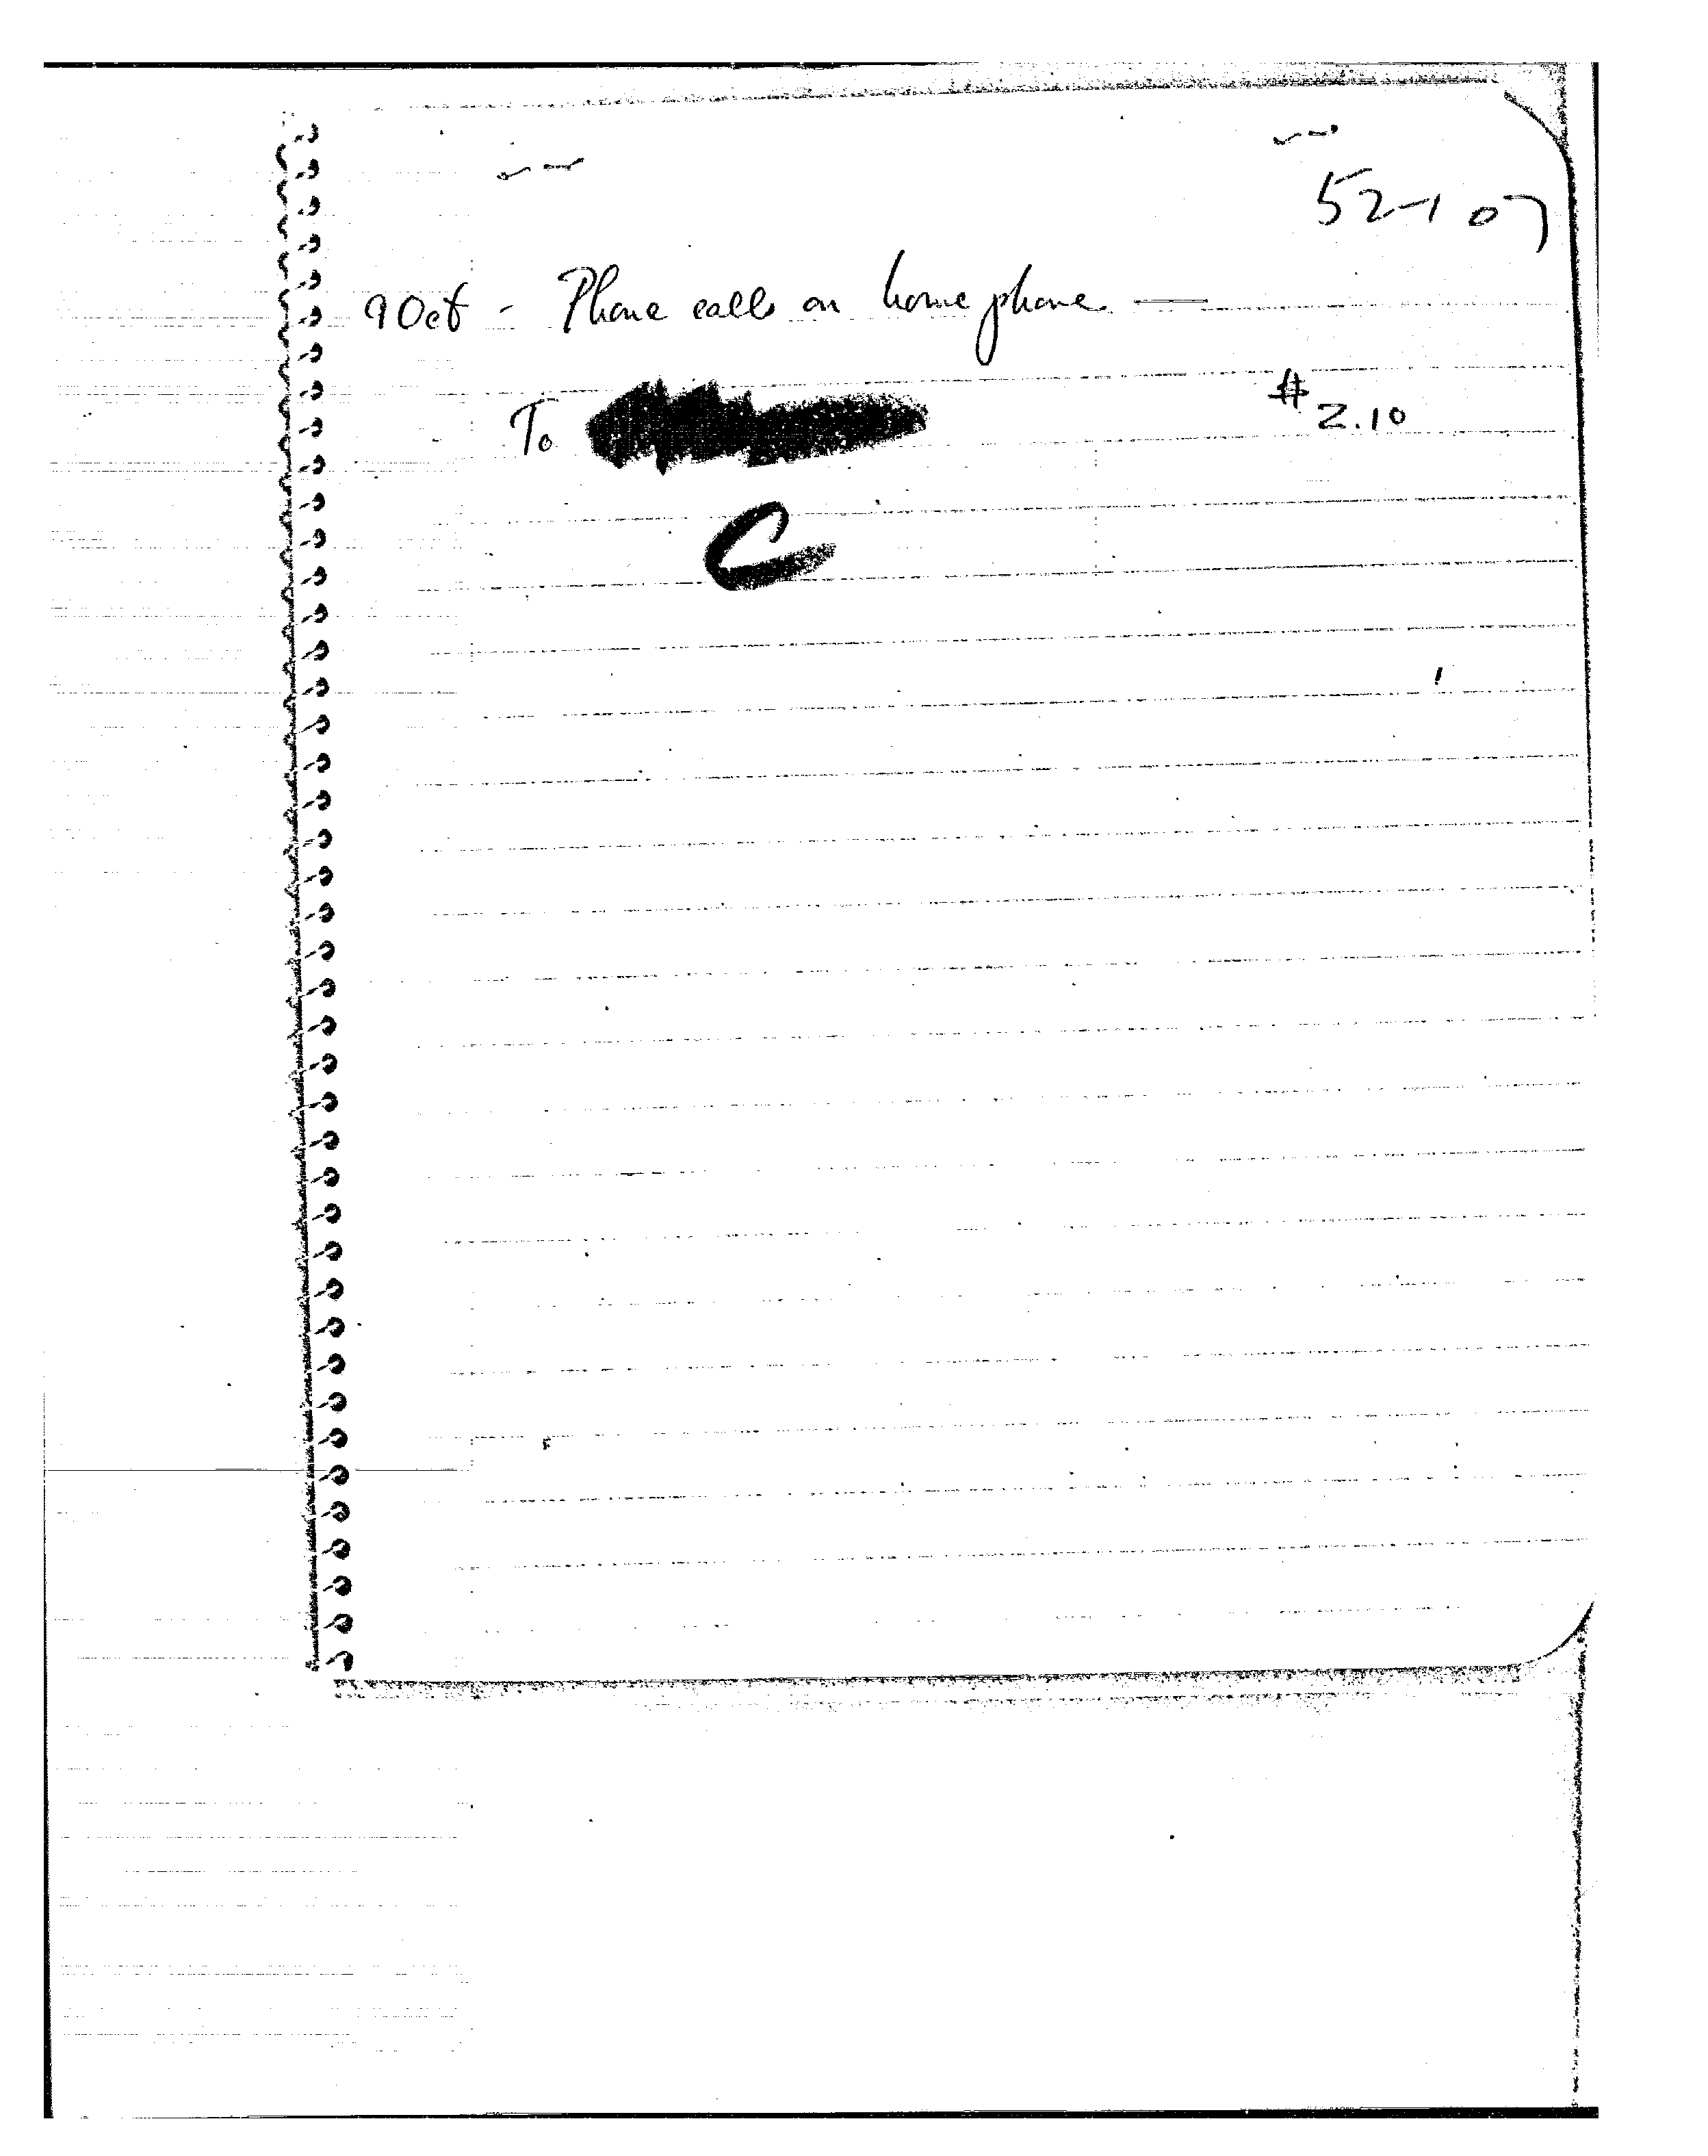 52-107
9 Oct - Phone calls on home phone —
To $2.10
C